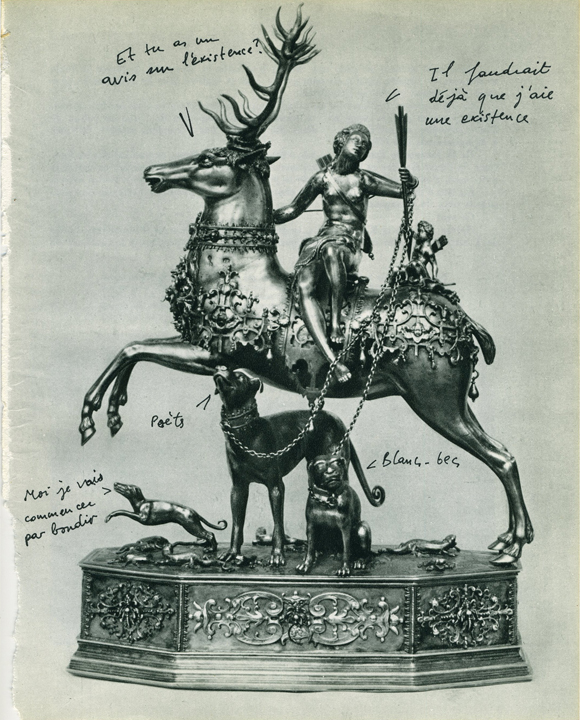 Et tu as un
avis sur l'existence?
Il faudrait
déjà que j'aie
une existence
Poëts
Blancs-becs
Moi je vais
commencer
par bondir